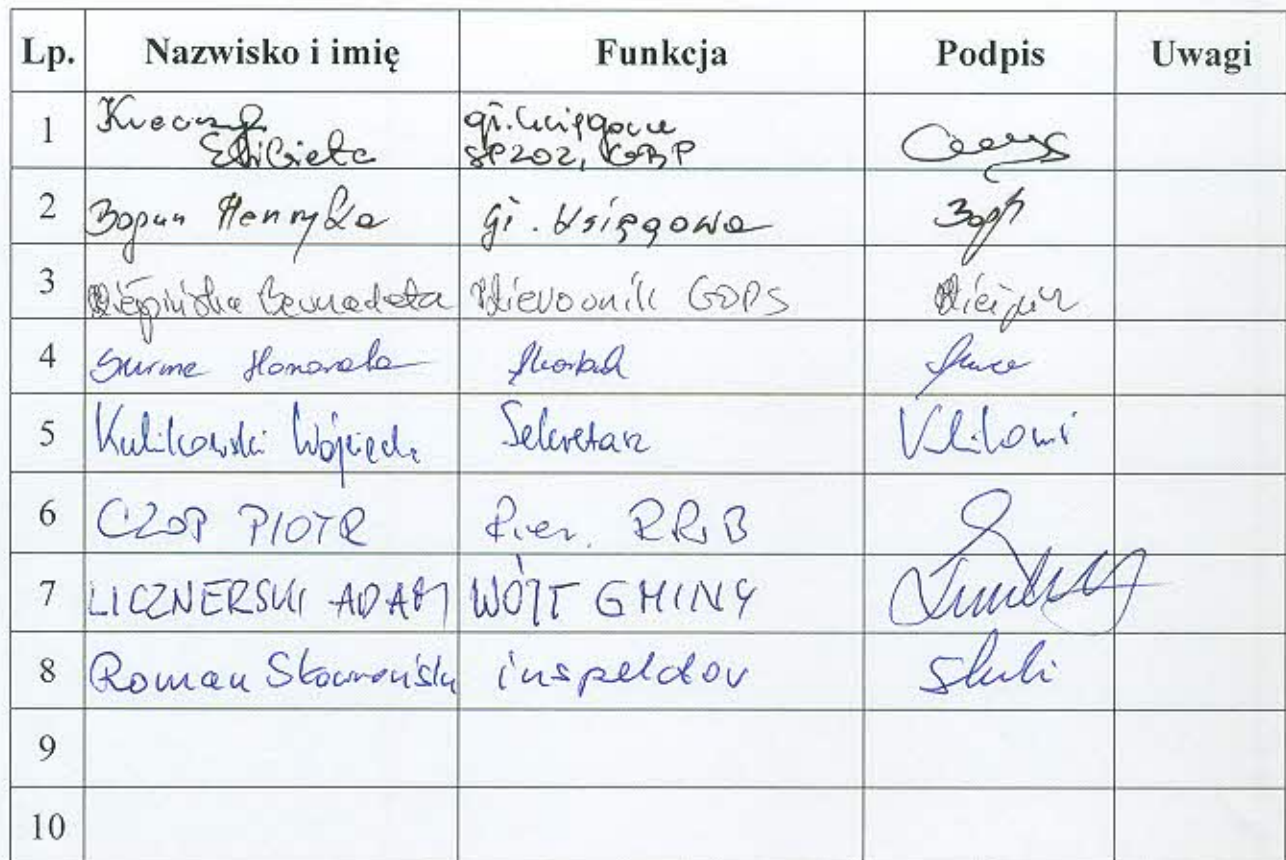 Lp. Nazwisko i imię Funkcja Podpis Uwagi
1 Elżbieta gł. księgowa
SPZOZ, GBP
2 Bogun Henryka gł. księgowa
3 Bernadeta Kierownik GOPS
4 Surma Honorata Skarbnik
5 Kulikowski Wojciech Sekretarz
6 CZOP PIOTR Kier. RRiB
7 LICZNERSKI ADAM WÓJT GMINY
8 Roman Skowroński inspektor
9
10